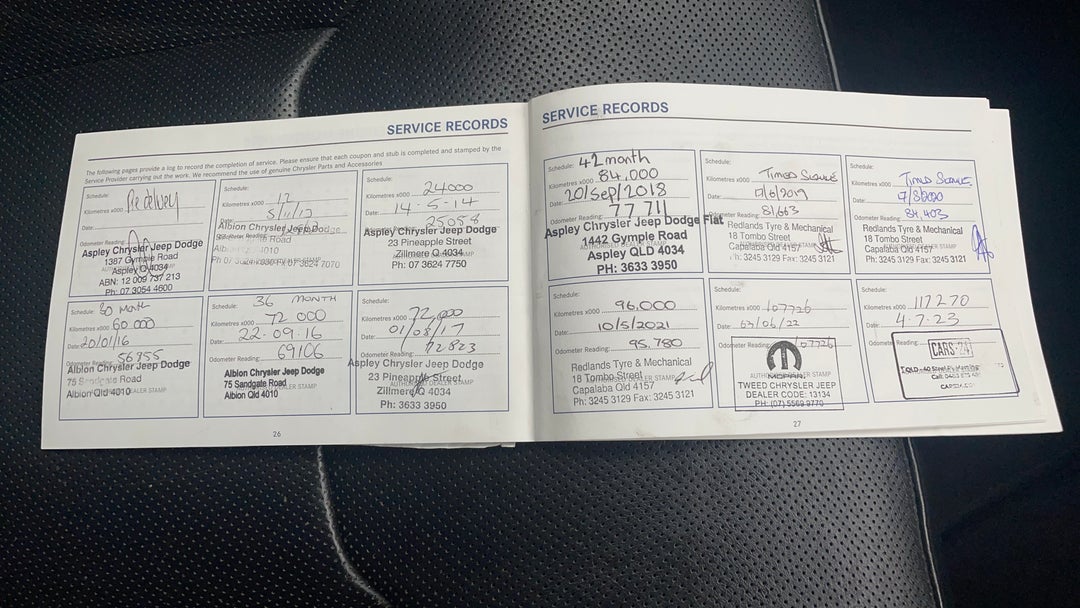 SERVICE RECORDS
The following pages provide a log to record the completion of service. Please ensure that each coupon and stub is completed and stamped by the
Service Provider carrying out the work. We recommend the use of genuine Chrysler Parts and Accessories
Schedule:
Kilometres x000 Pre delivery
Date:
Odometer Reading:
Aspley Chrysler Jeep Dodge
1387 Gympie Road
Aspley Q 4034
ABN: 12 009 737 213
Ph: 07 3054 4600
Schedule:
Kilometres x000 12
Date: 5/11/13
Odometer Reading:
Albion Chrysler Jeep Dodge
Road
4010
Schedule:
Kilometres x000 24000
Date: 14-5-14
25058
Aspley Chrysler Jeep Dodge
23 Pineapple Street
Zillmere Q 4034
Ph: 07 3624 7750
Schedule: 30 Month
Kilometres x000 60 000
Date: 20/01/16
Odometer Reading: 56755
Albion Chrysler Jeep Dodge
75 Sandgate Road
Albion Qld 4010
Schedule: 36 MONTH
Kilometres x000 72 000
Date: 22-09-16
Odometer Reading: 69106
Albion Chrysler Jeep Dodge
75 Sandgate Road
Albion Qld 4010
Schedule:
Kilometres x000 72,000
Date: 01/08/17
Odometer Reading: 72823
Aspley Chrysler Jeep Dodge
23 Pineapple Street
Zillmere Q 4034
Ph: 3633 3950
26
SERVICE RECORDS
Schedule: 42 month
Kilometres x000 84,000
Date: 20/Sep/2018
Odometer Reading: 77,711
Aspley Chrysler Jeep Dodge Fiat
1442 Gympie Road
AUTHORISED DEALER STAMP
Aspley QLD 4034
PH: 3633 3950
Schedule:
Kilometres x000 TIMED SERVICE
Date: /6/2019
Odometer Reading: 81,663
Redlands Tyre & Mechanical
18 Tombo Street
Capalaba Qld 4157
Ph: 3245 3129 Fax: 3245 3121
Schedule:
Kilometres x000 TIMED SERVICE
Date: /8/2020
Odometer Reading: 84,403
Redlands Tyre & Mechanical
18 Tombo Street
Capalaba Qld 4157
Ph: 3245 3129 Fax: 3245 3121
Schedule:
Kilometres x000 96.000
Date: 10/5/2021
Odometer Reading: 95.780
Redlands Tyre & Mechanical
18 Tombo Street
Capalaba Qld 4157
Ph: 3245 3129 Fax: 3245 3121
Schedule:
Kilometres x000 107726
Date: 03/06/22
Odometer Reading: 107726
MOPAR
TWEED CHRYSLER JEEP
DEALER CODE: 13134
PH: (07) 5569 9770
Schedule:
Kilometres x000 117270
Date: 4.7.23
Odometer Reading:
CARS 24
27